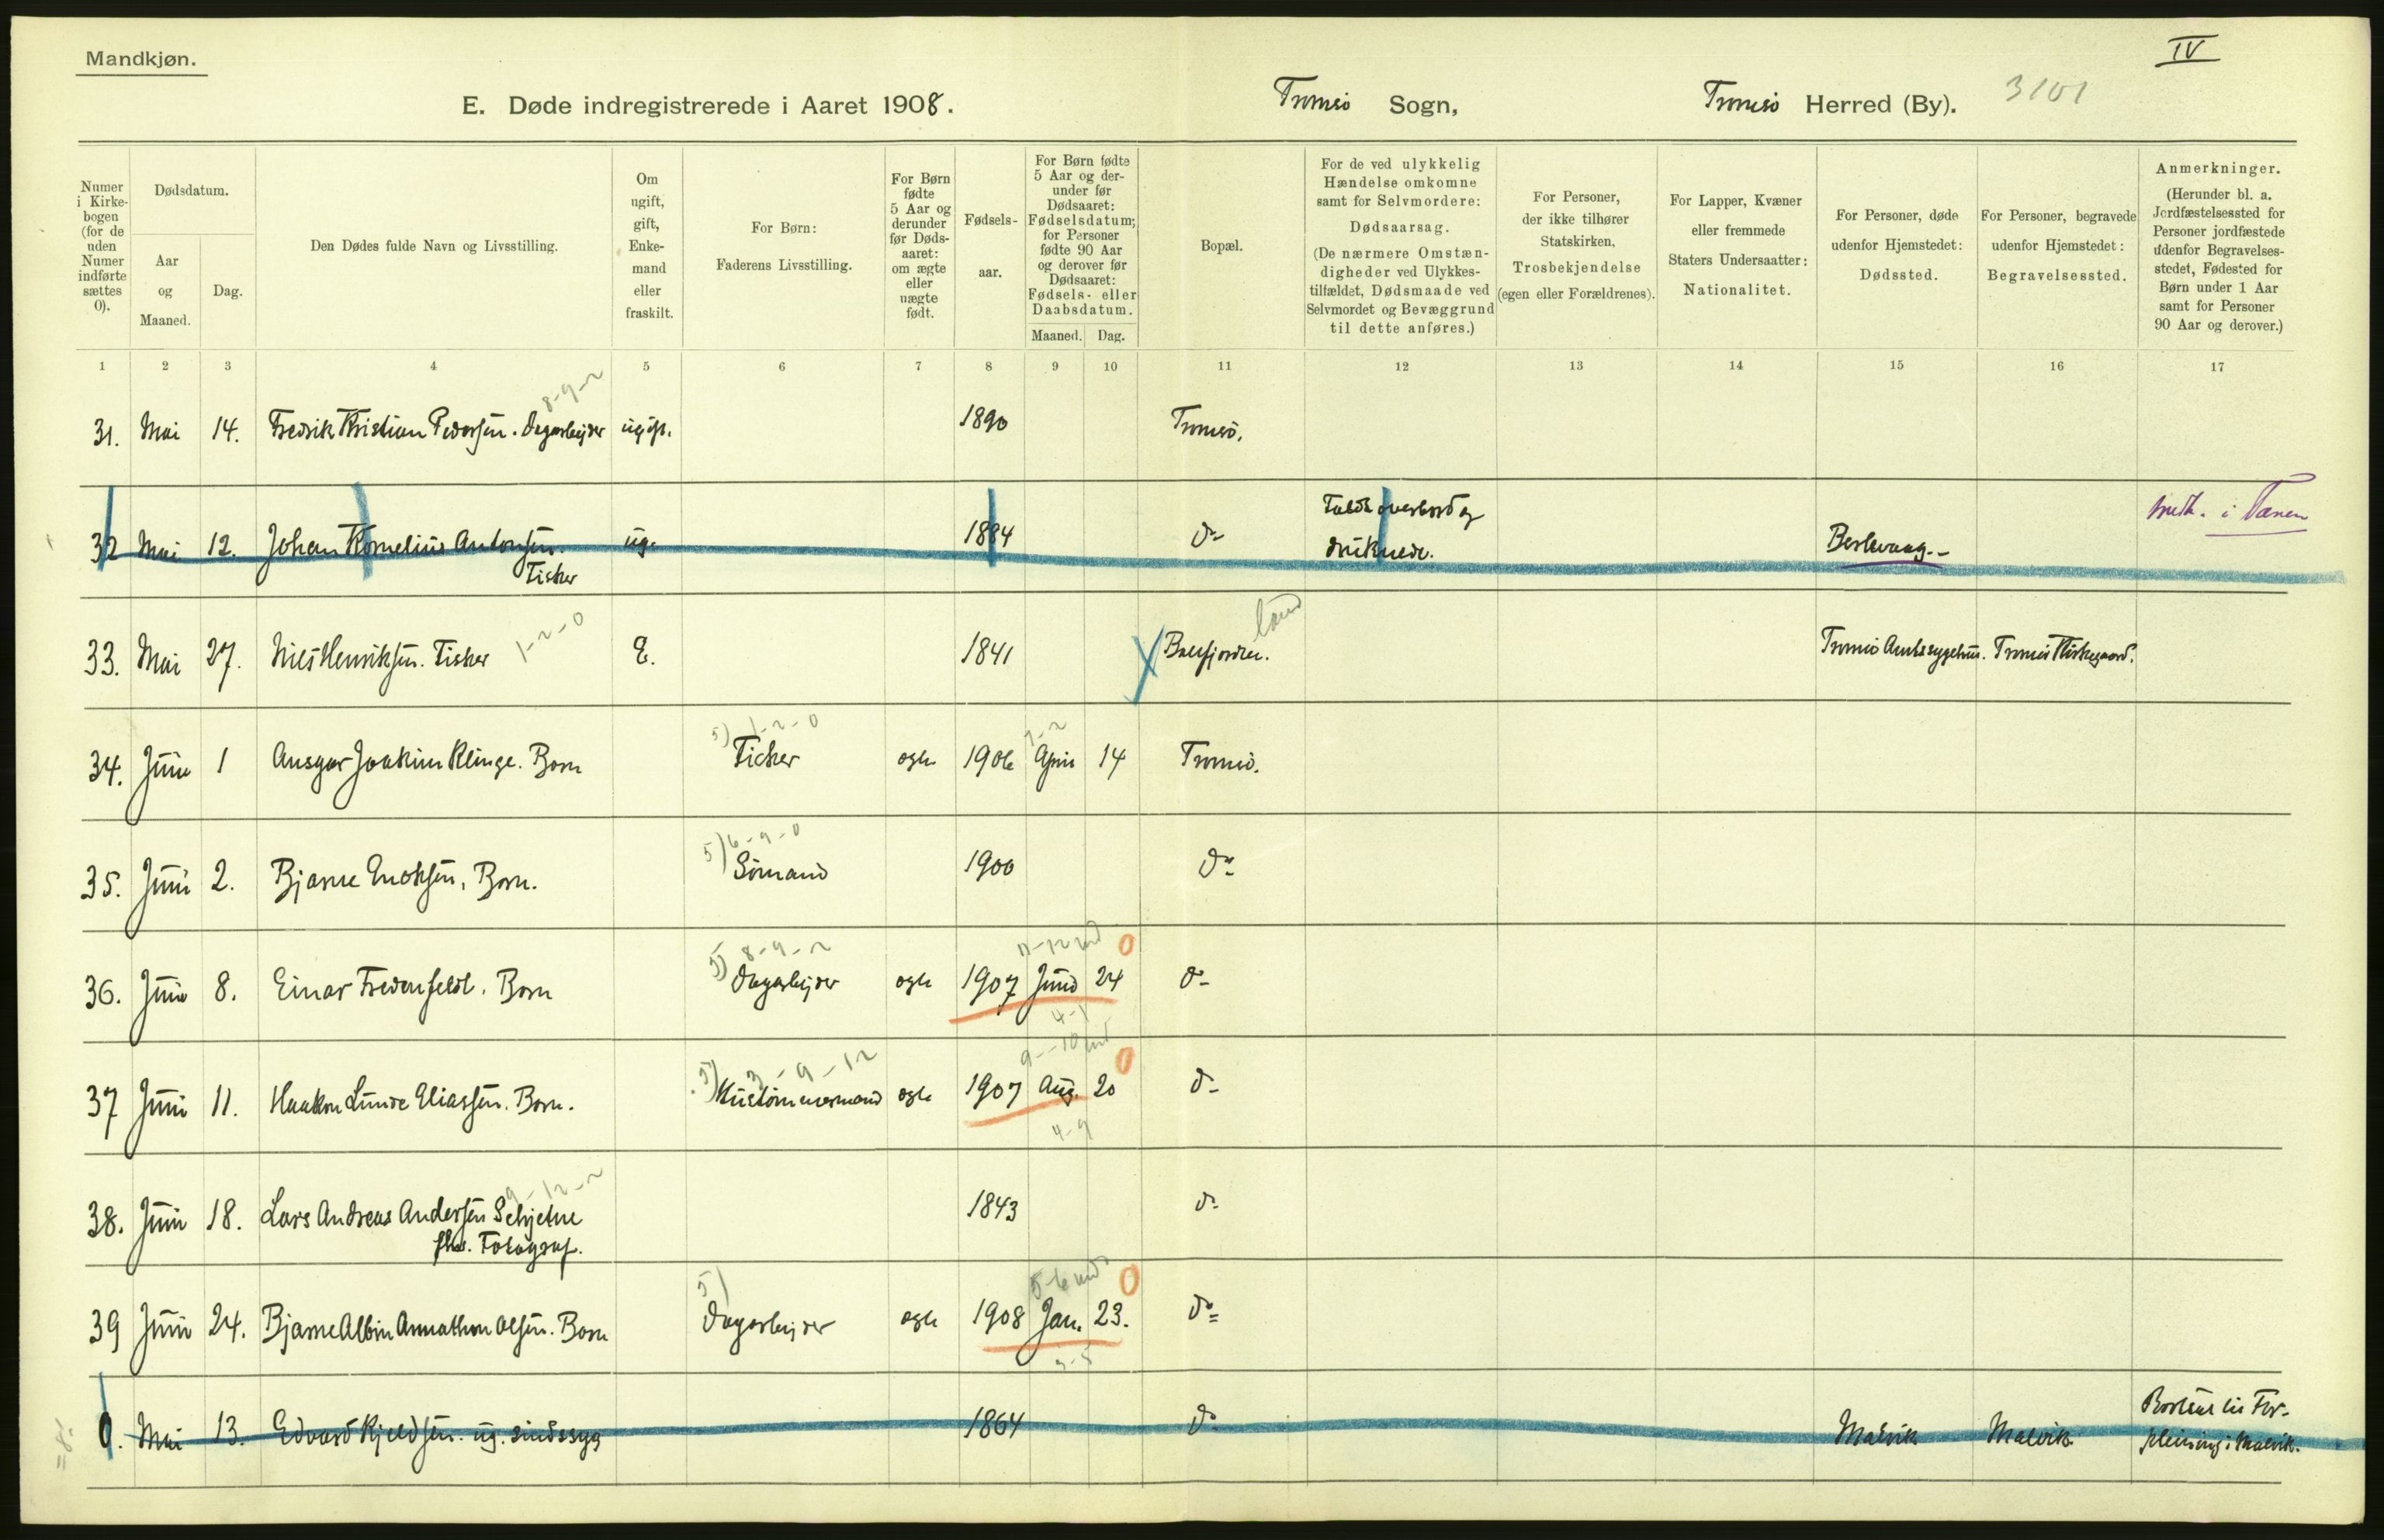 Mandkjøn.
IV
E. Døde indregistrerede i Aaret 1908. Tromsö Sogn, Tromsö Herred (By). 3101
Numer i Kirkebogen (for de uden Numer indførte sættes 0).
Dødsdatum.
Aar og Maaned.
Dag.
Den Dødes fulde Navn og Livsstilling.
Om ugift, gift, Enkemand eller fraskilt.
For Børn: Faderens Livsstilling.
For Børn fødte 5 Aar og derunder før Dødsaaret: om ægte eller uægte født.
Fødselsaar.
For Børn fødte 5 Aar og derunder før Dødsaaret: Fødselsdatum; for Personer fødte 90 Aar og derover før Dødsaaret: Fødsels- eller Daabsdatum.
Maaned. Dag.
Bopæl.
For de ved ulykkelig Hændelse omkomne samt for Selvmordere: Dødsaarsag. (De nærmere Omstændigheder ved Ulykkestilfældet, Dødsmaade ved Selvmordet og Bevæggrund til dette anføres.)
For Personer, der ikke tilhører Statskirken, Trosbekjendelse (egen eller Forældrenes).
For Lapper, Kvæner eller fremmede Staters Undersaatter: Nationalitet.
For Personer, døde udenfor Hjemstedet: Dødssted.
For Personer, begravede udenfor Hjemstedet: Begravelsessted.
Anmerkninger. (Herunder bl. a. Jordfæstelsessted for Personer jordfæstede udenfor Begravelsesstedet, Fødested for Børn under 1 Aar samt for Personer 90 Aar og derover.)
1 2 3 4 5 6 7 8 9 10 11 12 13 14 15 16 17
8-9-2
31. Mai 14. Fredrik Kristian Pedersen. Dagarbejder ugift. 1890 Tromsö.
32 Mai 12. Johan Kornelius Antonsen. ug. 1884 do Faldt overbord og
Fisker druknede. Berlevaag.-
medt. i Tanen
33. Mai 27. Nils Henriksen. Fisker 1-2-0 E. 1841 Balsfjorden. land Tromsö Amtssygehus. Tromsö Kirkegaard.
5) 1-2-0 1-2
34. Juni 1 Ansgar Joakim Klinge. Barn Fisker egte 1906 April 14 Tromsö.
5) 6-9-0
35. Juni 2. Bjarne Enoksen, Barn. Sömand 1900 do
5) 8-9-2 11-12 md 0
36. Juni 8. Einar Fredenfeldt. Barn Dagarbejder egte 1907 Juni 24 do
4-1
5) 3-9-12 9-10 md 0
37 Juni 11. Haakon Lunde Eliassen. Barn. Hustömmermand egte 1907 Aug. 20 do
4-9
9-12-2
38. Juni 18. Lars Andreas Andersen Schjetne 1843 do
fhv. Fotograf.
5) 5-6 md 0
39 Juni 24. Bjarne Albin Annathon Olsen. Barn Dagarbejder egte 1908 Jan. 23. do
3-5
=8.
0. Mai 13. Edvard Kjeldsen. ug. sindssyg 1864 do Malvik Malvik Bortsat til For-
pleining i Malvik.